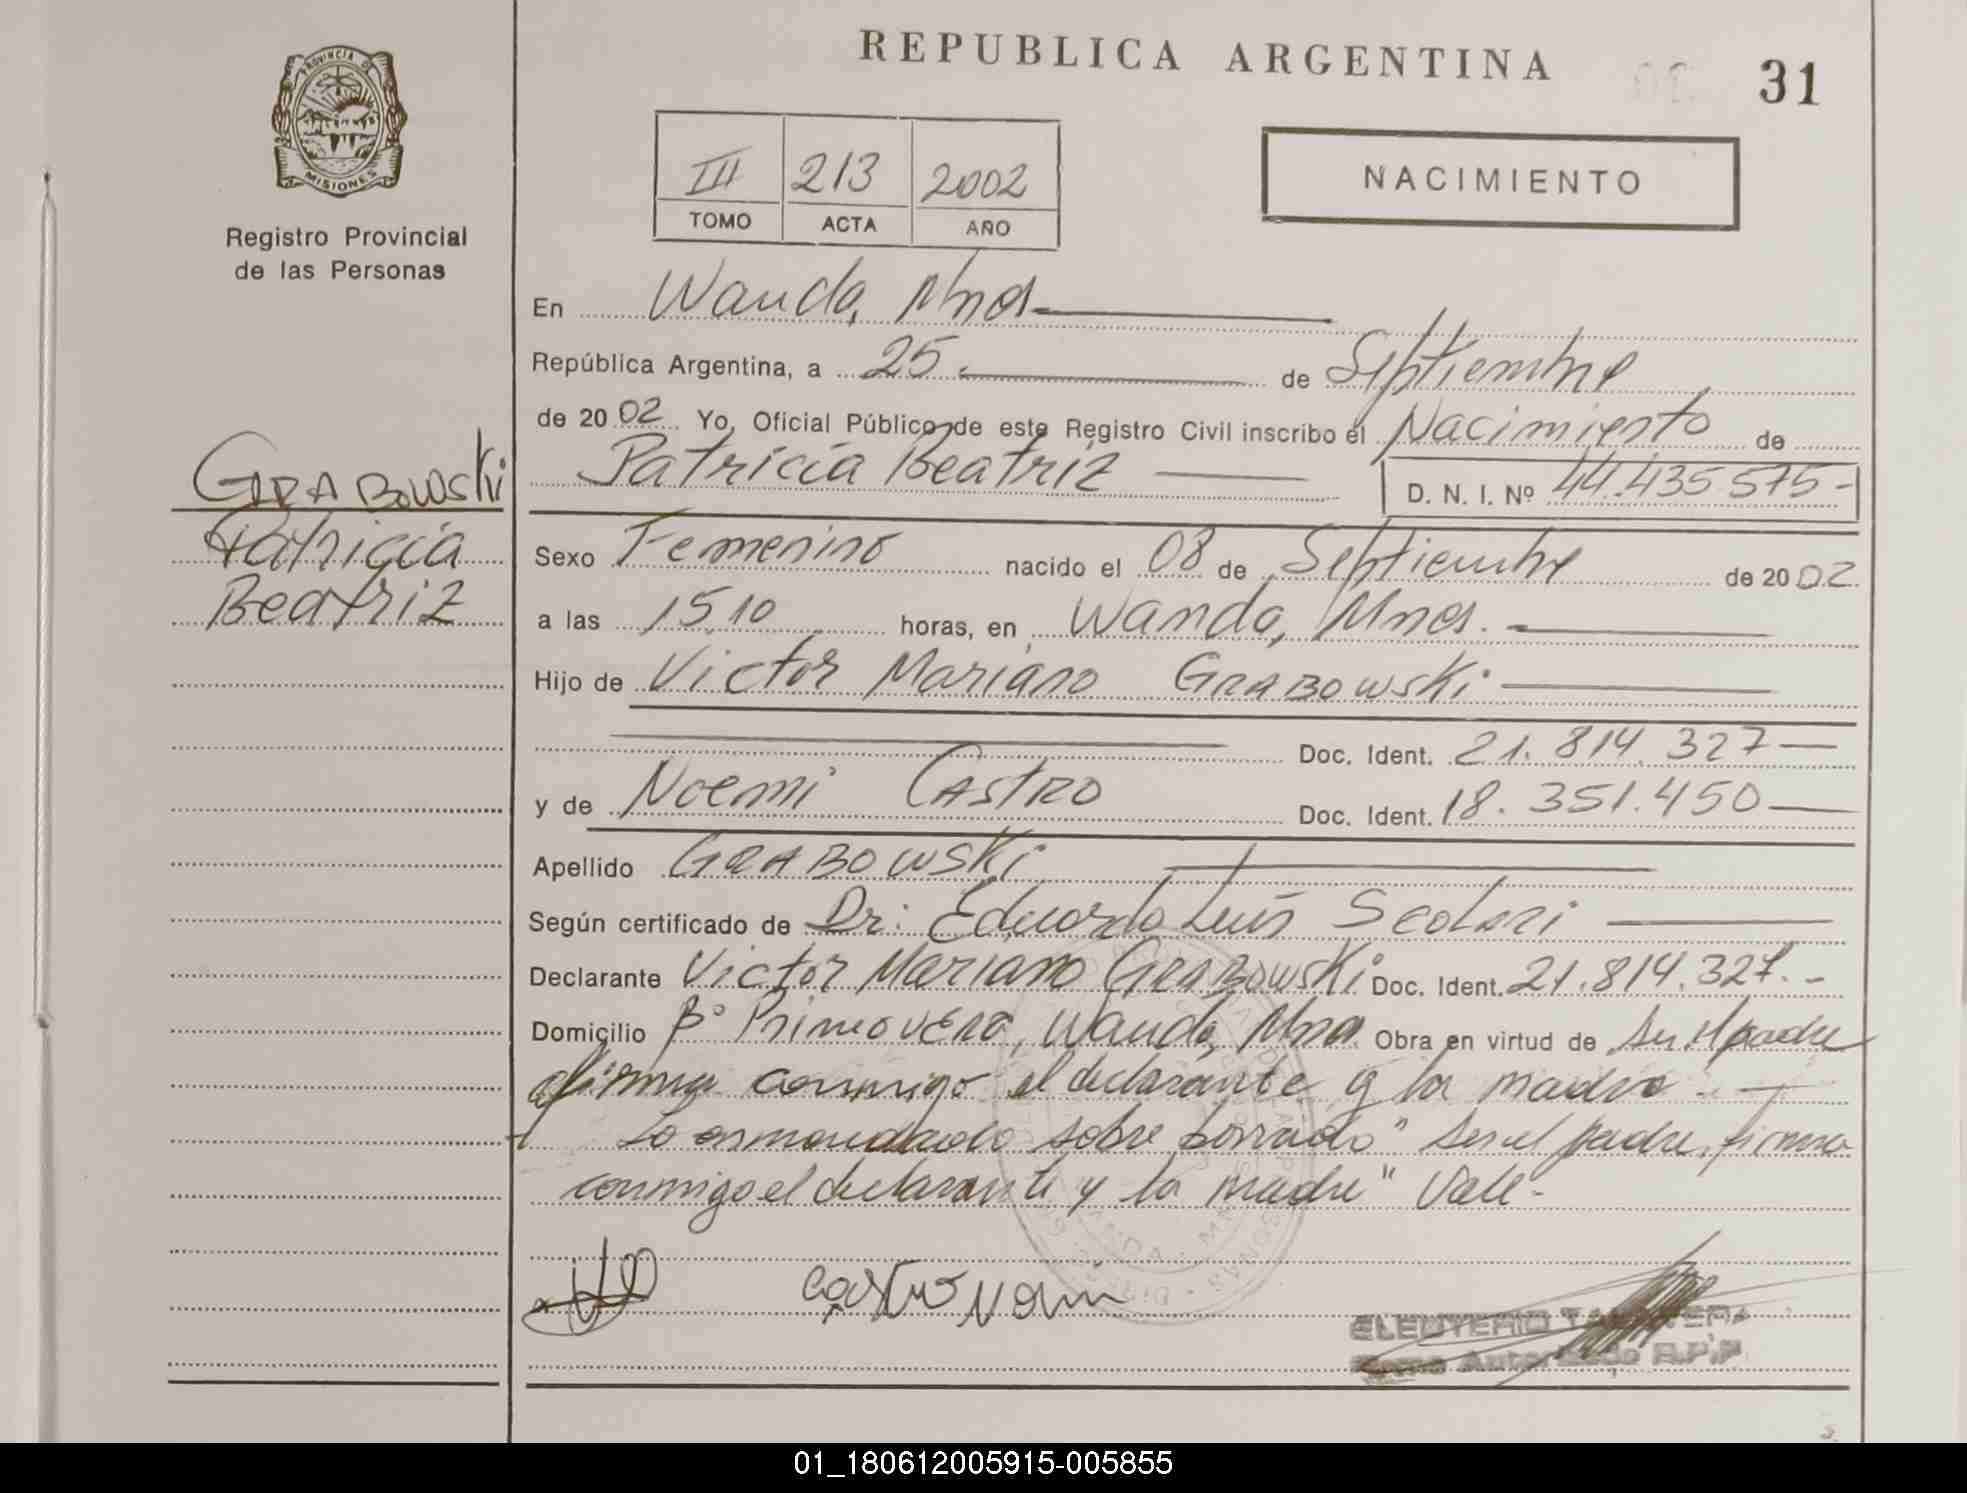 REPUBLICA ARGENTINA
31
PROVINCIA DE
MISIONES
Registro Provincial
de las Personas
III 213 2002
TOMO ACTA AÑO
NACIMIENTO
En Wanda, Mnes
República Argentina, a 25 de Septiembre
de 2002 Yo, Oficial Público de este Registro Civil inscribo el Nacimiento de
Patricia Beatriz D. N. I. Nº 44.435.575-
GRABOWSKI
Patricia
Beatriz
Sexo Femenino nacido el 08 de Septiembre de 2002.
a las 15,10 horas, en Wanda, Mnes.
Hijo de Victor Mariano GRABOWSKi
Doc. Ident. 21.814.327
y de Noemi CASTRO Doc. Ident. 18.351.450
Apellido GRABOWSKi
Según certificado de Dr: Eduardo Luis Scolari
Declarante Victor Mariano GRABOWSKi Doc. Ident. 21.814.327.-
Domicilio Bº Primavera, Wanda, Mnes Obra en virtud de ser el padre
firma conmigo el declarante y la madre
Lo enmendado sobre borrado" ser el padre, firma
conmigo el declarante y la madre" Vale-
Castro Noemi
ELEUTERIO
Autorizado R.P.P.
01_180612005915-005855